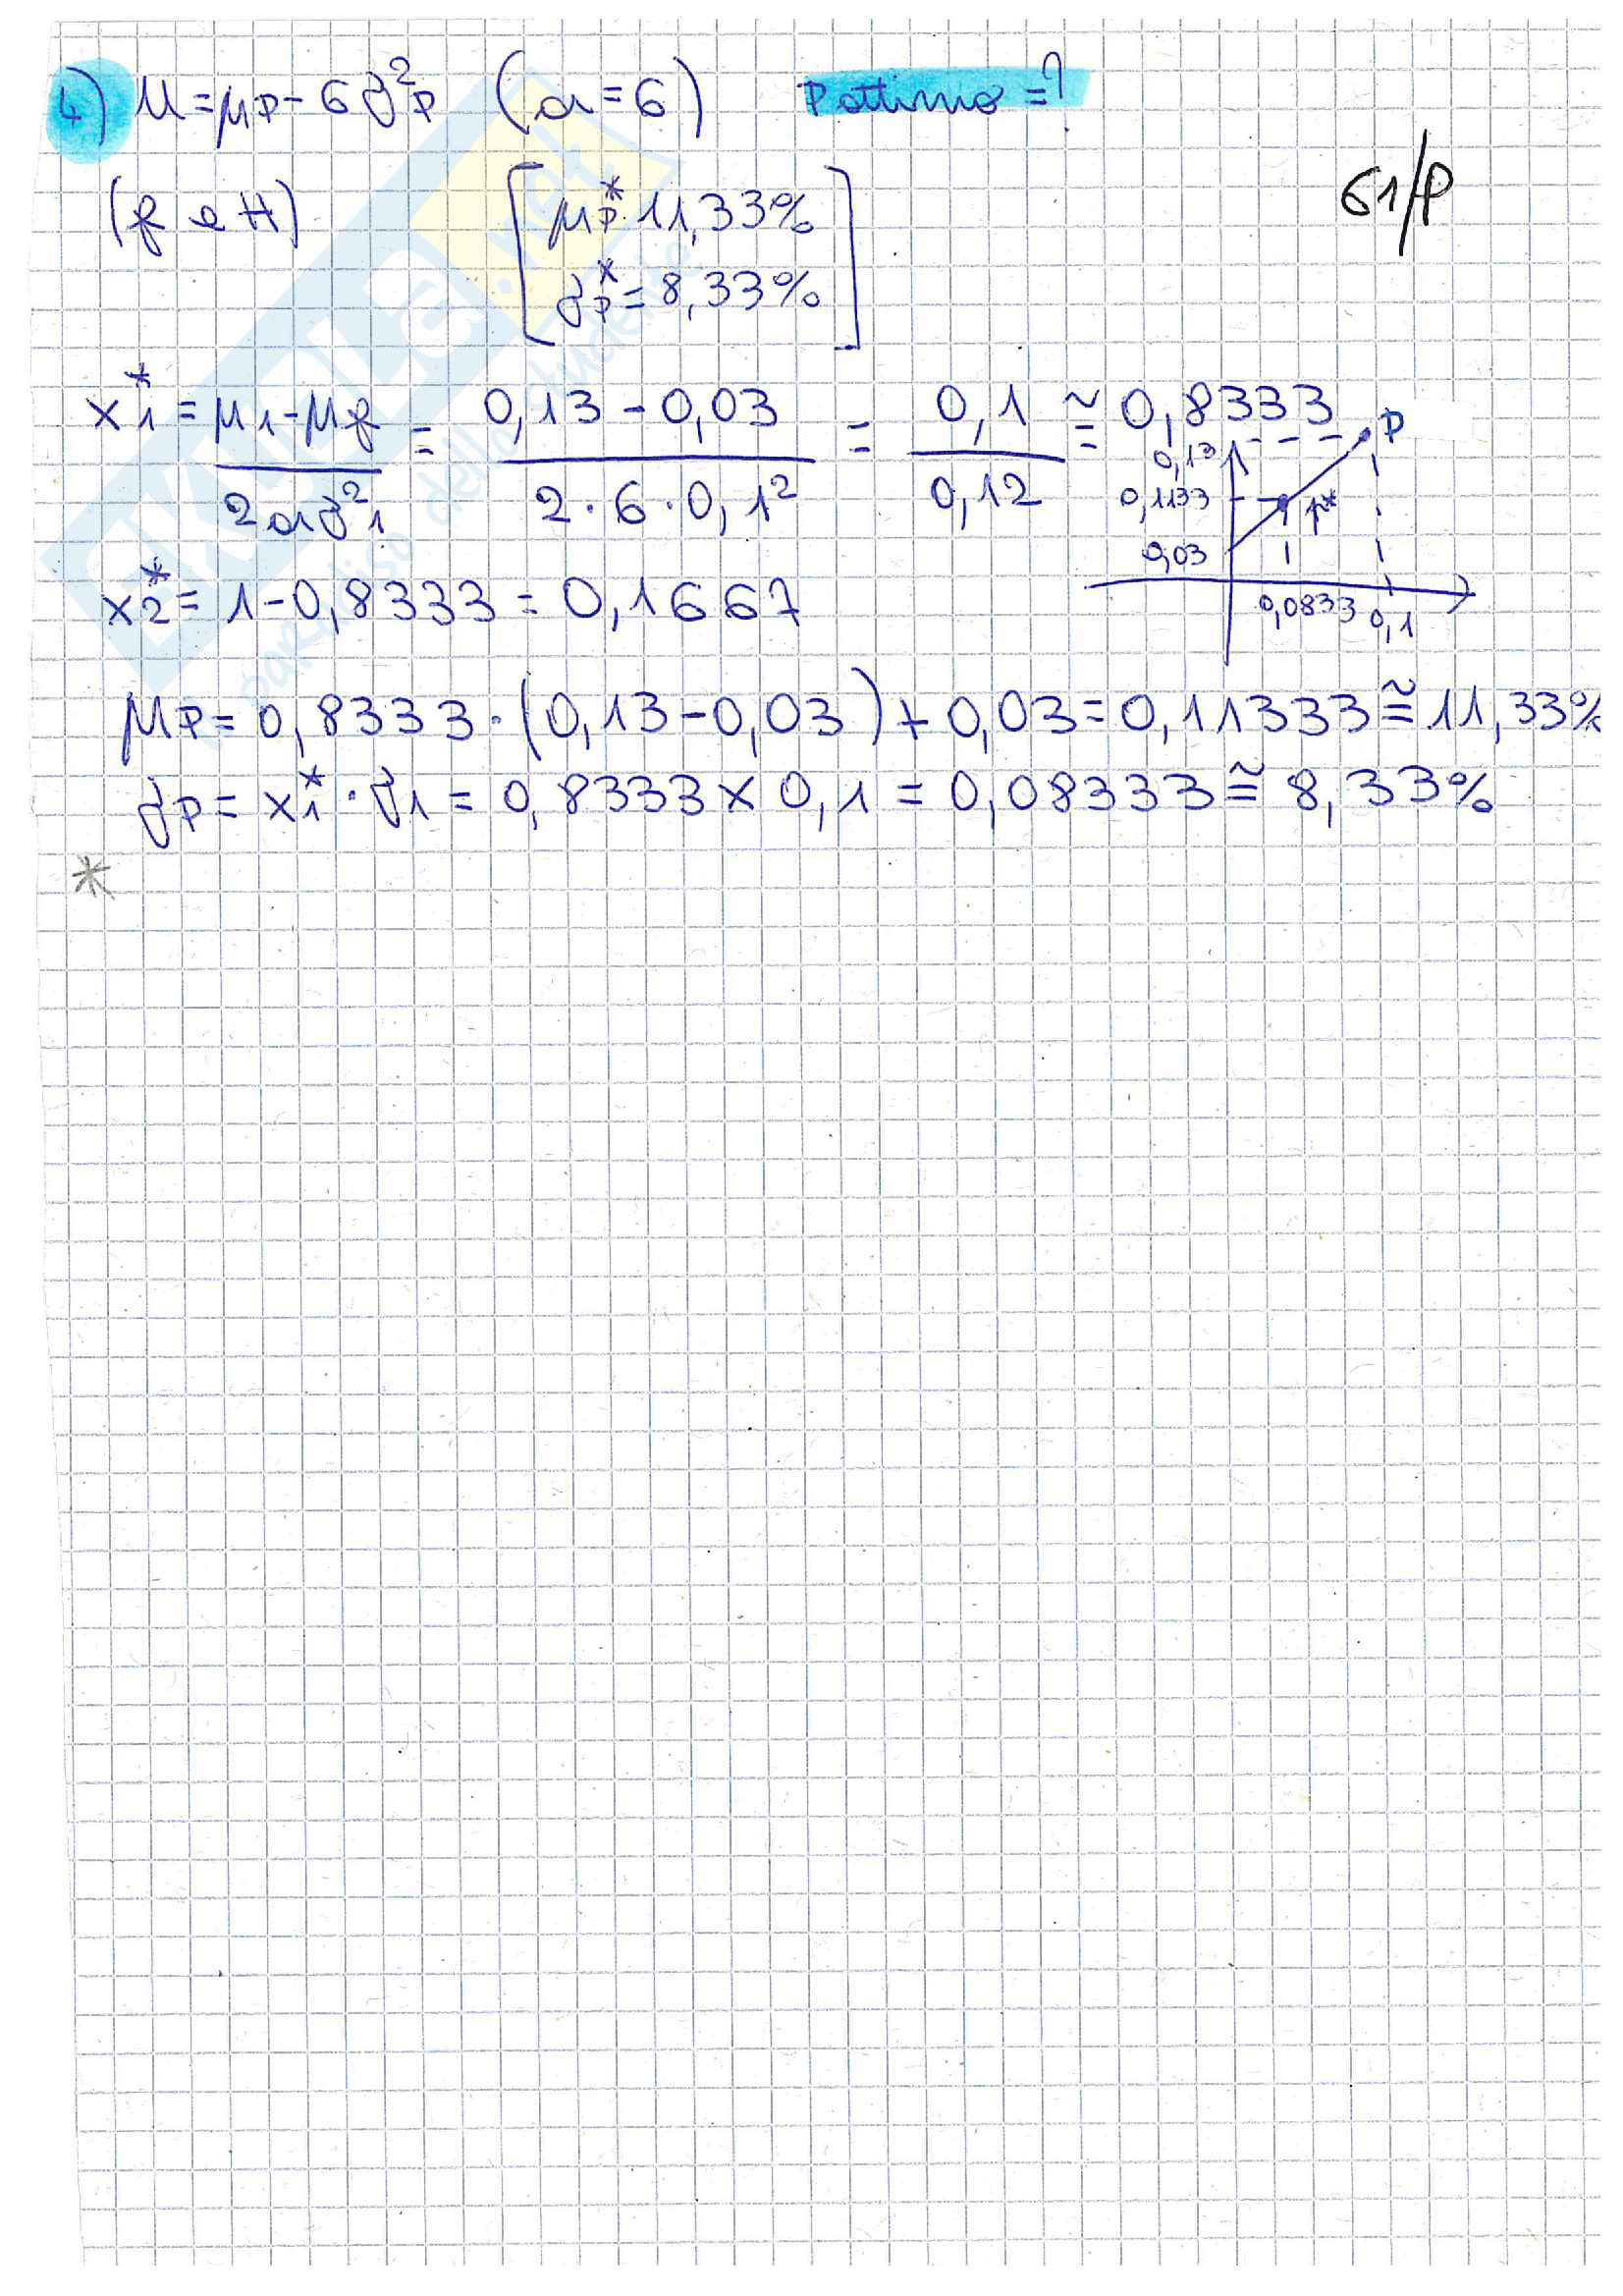 4) U = μP - 6σ²P (a = 6) P ottimo = ?
61/P
(f e H)
[μP* 11,33%
σP* = 8,33%]
x1* = (μ1 - μf) / (2aσ²1) = (0,13 - 0,03) / (2 · 6 · 0,1²) = 0,1 / 0,12 ≅ 0,8333
P
0,13
0,1133
P*
0,03
0,0833 0,1
x2* = 1 - 0,8333 = 0,1667
μP = 0,8333 · (0,13 - 0,03) + 0,03 = 0,11333 ≅ 11,33%
σP = x1* · σ1 = 0,8333 × 0,1 = 0,08333 ≅ 8,33%
*